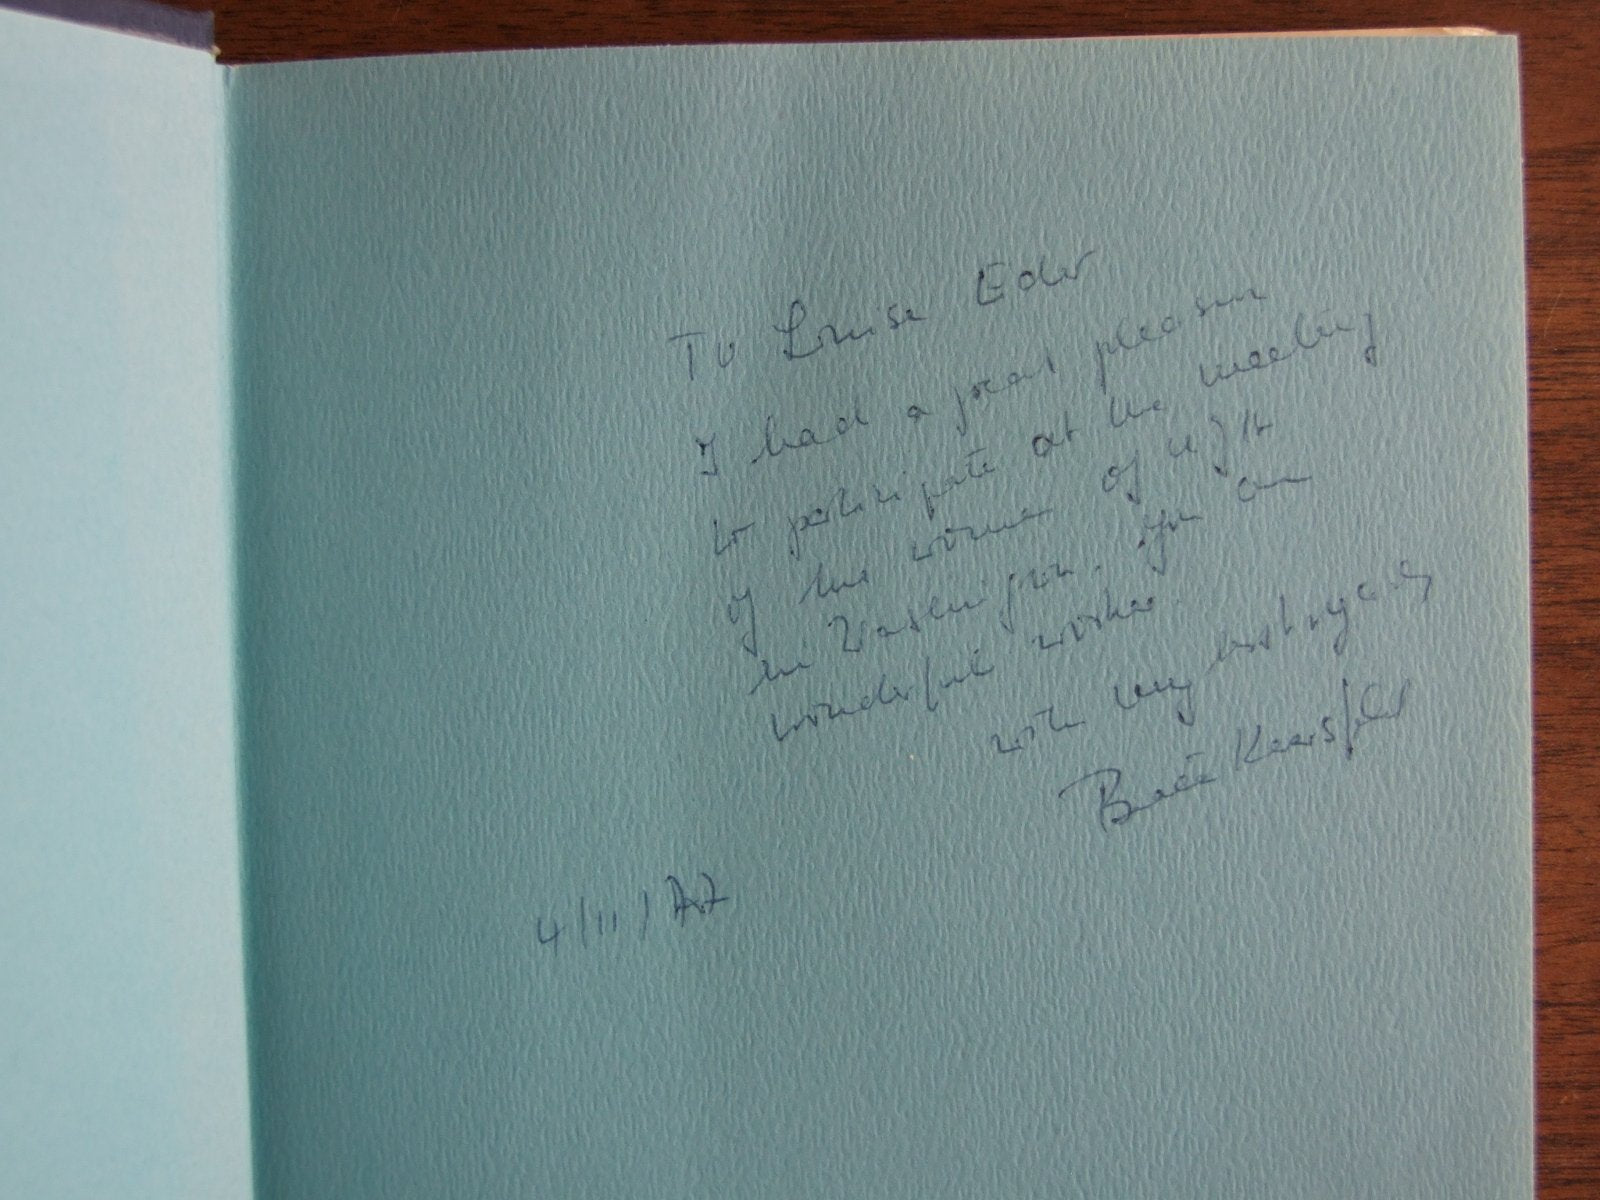 To Louise Eder
I had a great pleasure
to participate at the meeting
of the women of UJA
in Washington. You are
wonderful worker.
with very best regards
Beate Klarsfeld
4/11/77